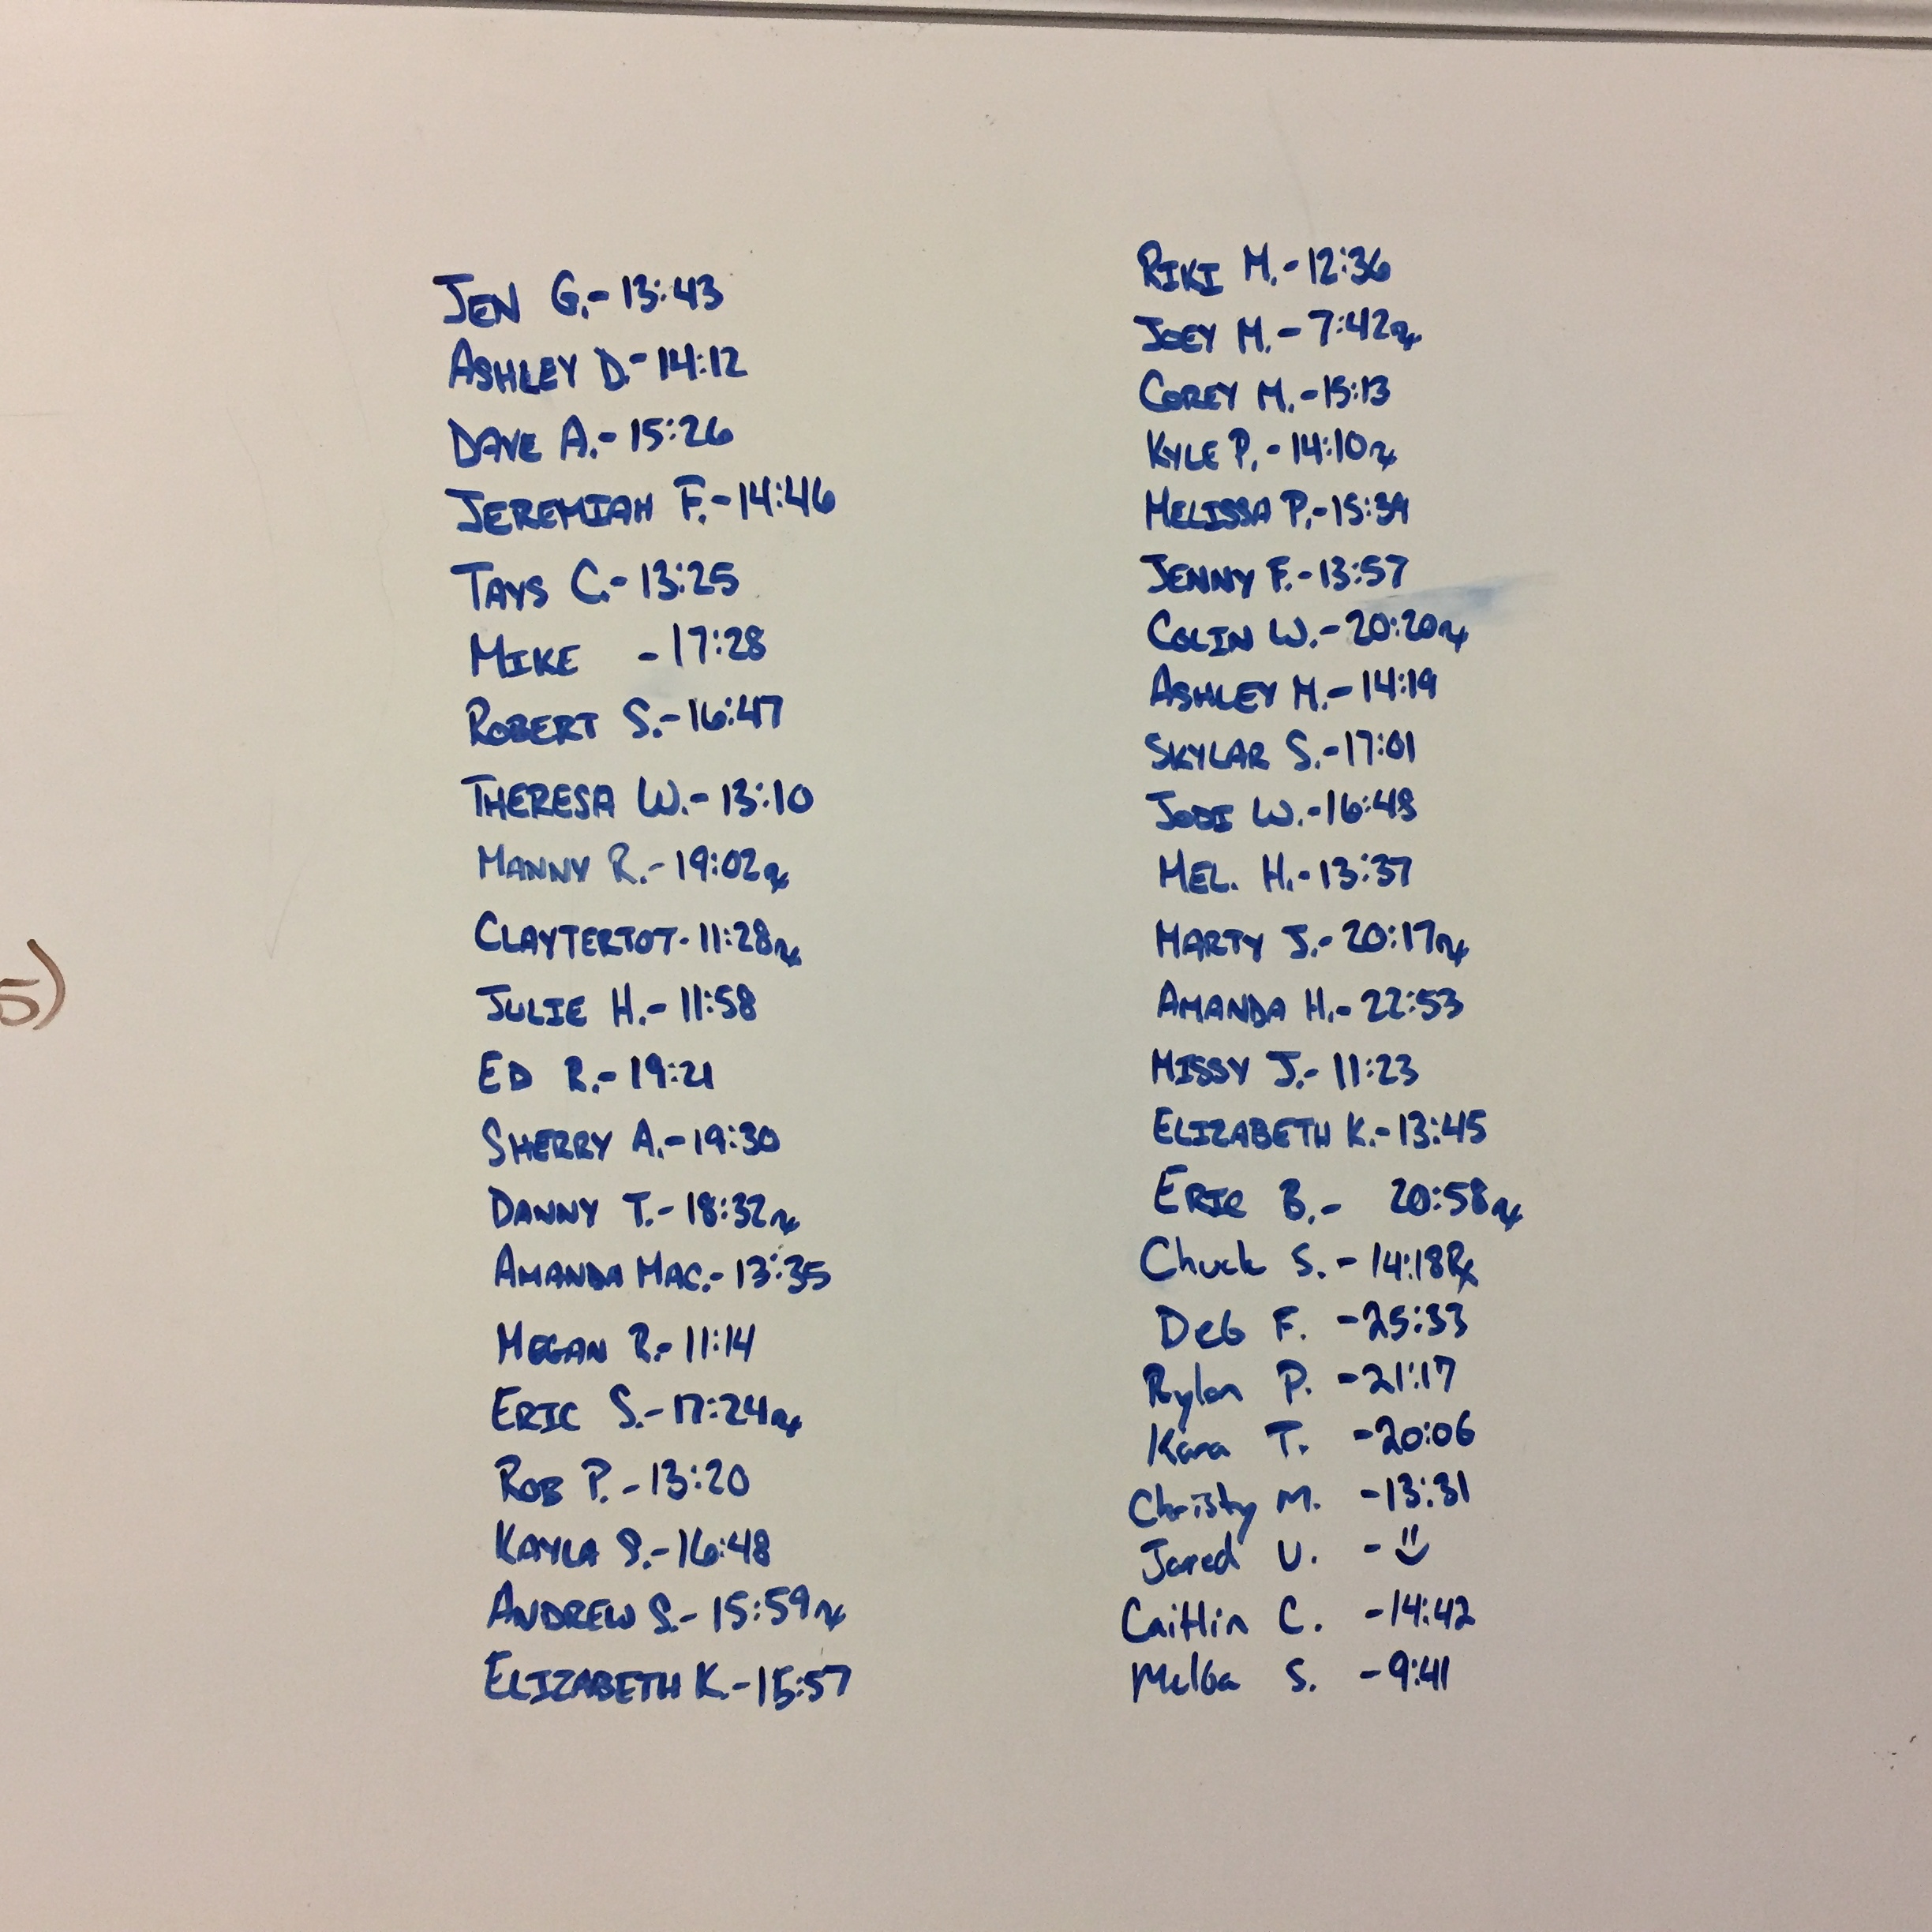 JEN G.- 13:43
ASHLEY D.- 14:12
DAVE A.- 15:26
JEREMIAH F.- 14:46
TAYS C.- 13:25
MIKE - 17:28
ROBERT S.- 16:47
THERESA W.- 13:10
MANNY R.- 19:02 rx
CLAYTERTOT- 11:28 rx
JULIE H.- 11:58
ED R.- 19:21
SHERRY A.- 19:30
DANNY T.- 18:32 rx
AMANDA MAC.- 13:35
MEGAN R.- 11:14
ERIC S.- 17:24 rx
ROB P. - 13:20
KAYLA S.- 16:48
ANDREW S.- 15:59 rx
ELIZABETH K.- 15:57
RIKI M.- 12:36
JOEY M.- 7:42 rx
COREY M.- 15:13
KYLE P.- 14:10 rx
MELISSA P.- 15:39
JENNY F.- 13:57
COLIN W.- 20:20 rx
ASHLEY M.- 14:19
SKYLAR S.- 17:01
JODI W.- 16:48
MEL. H.- 13:37
MARTY J.- 20:17 rx
AMANDA H.- 22:53
MISSY J.- 11:23
ELIZABETH K.- 13:45
ERIC B.- 20:58 rx
Chuck S. - 14:18 Rx
Deb F. - 25:33
Rylan P. - 21:17
Kara T. - 20:06
Christy M. - 13:31
Jared U. - 
Caitlin C. - 14:42
Melba S. - 9:41
5)